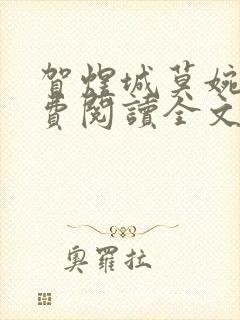 賀煌城莫婉
費閱讀全文
奧羅拉